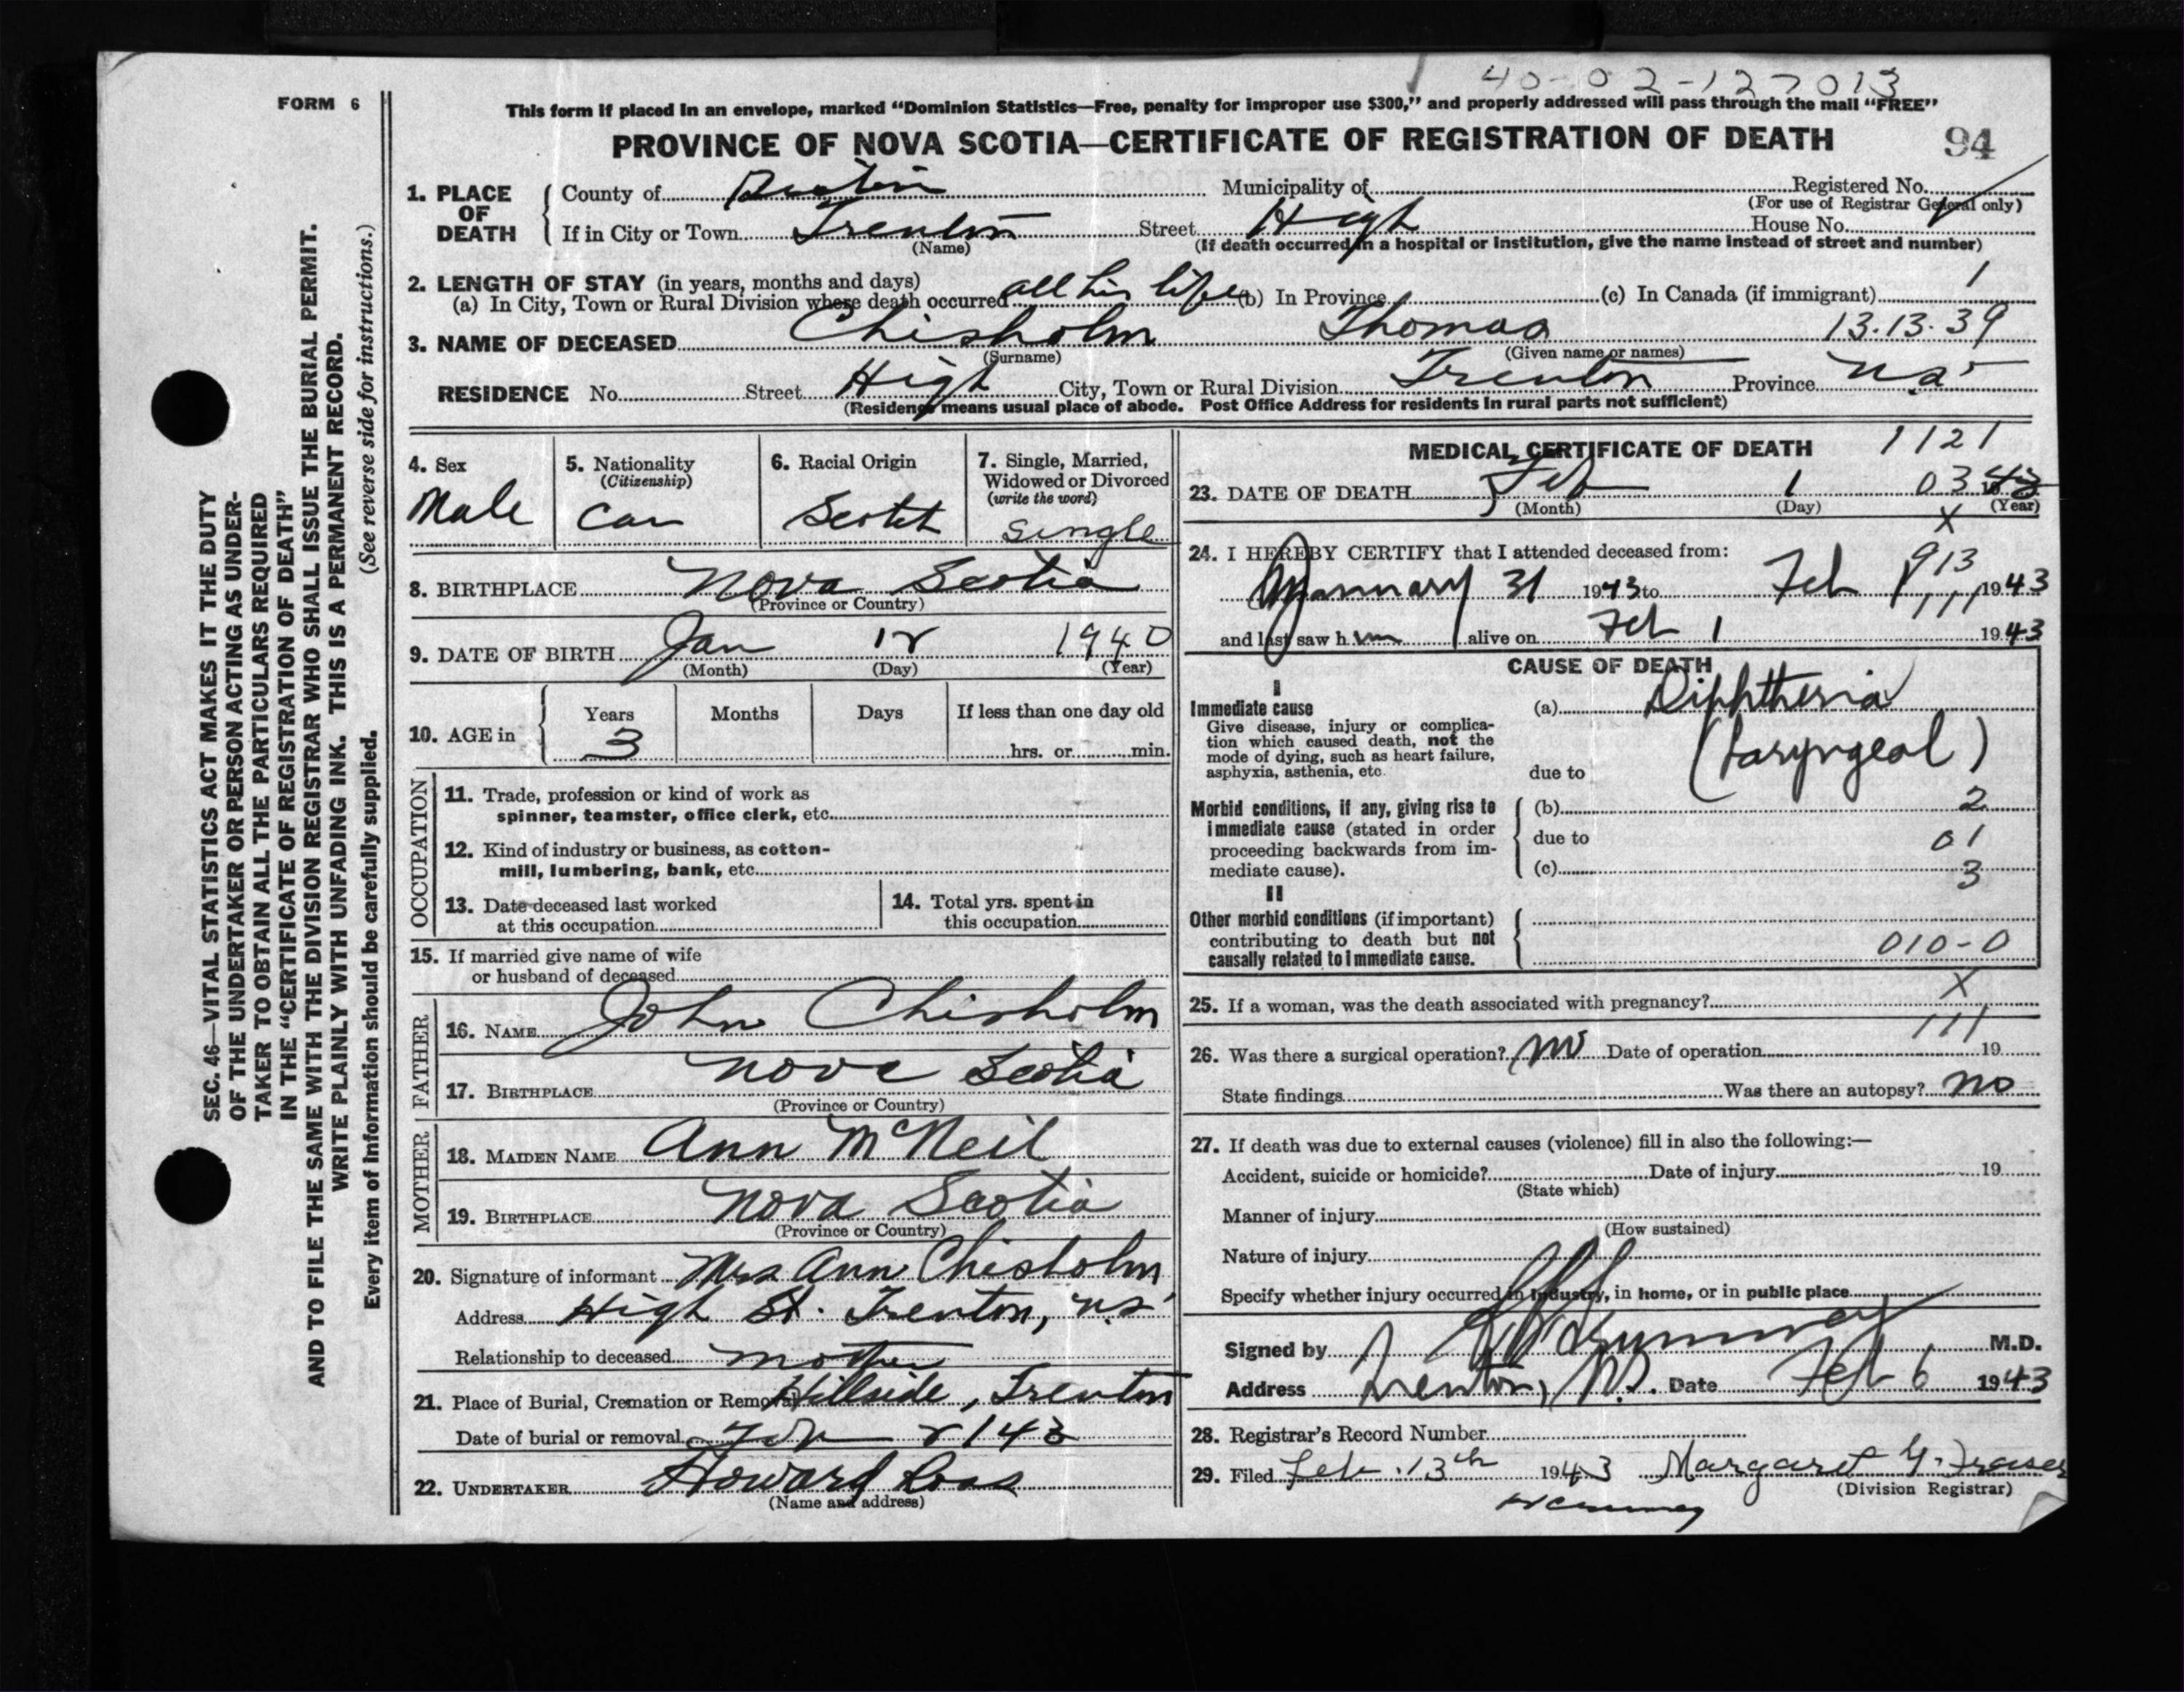 40-02-127013
FORM 6
This form if placed in an envelope, marked "Dominion Statistics—Free, penalty for improper use $300," and properly addressed will pass through the mail "FREE"
PROVINCE OF NOVA SCOTIA—CERTIFICATE OF REGISTRATION OF DEATH 94
1. PLACE OF DEATH
County of Municipality of Registered No.
(For use of Registrar General only)
If in City or Town Trenton Street High House No.
(Name) (If death occurred in a hospital or institution, give the name instead of street and number)
2. LENGTH OF STAY (in years, months and days) 1
(a) In City, Town or Rural Division where death occurred all his life (b) In Province (c) In Canada (if immigrant)
3. NAME OF DECEASED Chisholm Thomas 13.13.39
(Surname) (Given name or names)
RESIDENCE No. Street High City, Town or Rural Division Trenton Province N.S.
(Residence means usual place of abode. Post Office Address for residents in rural parts not sufficient)
4. Sex
Male
5. Nationality
(Citizenship)
Can
6. Racial Origin
Scotch
7. Single, Married,
Widowed or Divorced
(write the word)
Single
8. BIRTHPLACE Nova Scotia
(Province or Country)
9. DATE OF BIRTH Jan 12 1940
(Month) (Day) (Year)
10. AGE in
Years Months Days If less than one day old
3 hrs. or min.
OCCUPATION
11. Trade, profession or kind of work as
spinner, teamster, office clerk, etc.
12. Kind of industry or business, as cotton-
mill, lumbering, bank, etc.
13. Date deceased last worked
at this occupation
14. Total yrs. spent in
this occupation
15. If married give name of wife
or husband of deceased
FATHER
16. NAME John Chisholm
17. BIRTHPLACE Nova Scotia
(Province or Country)
MOTHER
18. MAIDEN NAME Ann McNeil
19. BIRTHPLACE Nova Scotia
(Province or Country)
20. Signature of informant Mrs Ann Chisholm
Address High St. Trenton, N.S.
Relationship to deceased mother
21. Place of Burial, Cremation or Removal Hillside, Trenton
Date of burial or removal Feb 2 143
22. UNDERTAKER Howard Ross
(Name and address)
MEDICAL CERTIFICATE OF DEATH 1121
23. DATE OF DEATH Feb 1 03 1943
(Month) (Day) (Year)
X
24. I HEREBY CERTIFY that I attended deceased from:
913
January 31 1943 to Feb 1 1943
111
and last saw him alive on Feb 1 1943
CAUSE OF DEATH
I
Immediate cause
Give disease, injury or complica-
tion which caused death, not the
mode of dying, such as heart failure,
asphyxia, asthenia, etc.
(a) Diphtheria
(Laryngeal)
due to
Morbid conditions, if any, giving rise to
immediate cause (stated in order
proceeding backwards from im-
mediate cause).
(b) 2
due to 01
(c) 3
II
Other morbid conditions (if important)
contributing to death but not
causally related to immediate cause.
010-0
X
25. If a woman, was the death associated with pregnancy?
111
26. Was there a surgical operation? No Date of operation 19
State findings Was there an autopsy? No
27. If death was due to external causes (violence) fill in also the following:—
Accident, suicide or homicide? Date of injury 19
(State which)
Manner of injury
(How sustained)
Nature of injury
Specify whether injury occurred in industry, in home, or in public place
Signed by M.D.
Address Trenton, N.S. Date Feb 6 1943
28. Registrar's Record Number
29. Filed Feb. 13th 1943 Margaret G. Fraser
(Division Registrar)
SEC. 46—VITAL STATISTICS ACT MAKES IT THE DUTY
OF THE UNDERTAKER OR PERSON ACTING AS UNDER-
TAKER TO OBTAIN ALL THE PARTICULARS REQUIRED
IN THE "CERTIFICATE OF REGISTRATION OF DEATH"
AND TO FILE THE SAME WITH THE DIVISION REGISTRAR WHO SHALL ISSUE THE BURIAL PERMIT.
WRITE PLAINLY WITH UNFADING INK. THIS IS A PERMANENT RECORD.
(See reverse side for instructions.)
Every item of information should be carefully supplied.